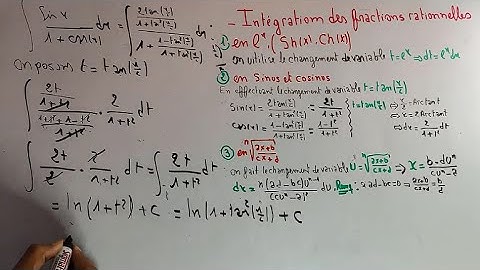 ∫ Sin x / (1 + cos(x)) dx = ∫ (2tan(x/2) / (1+tan²(x/2))) / (1 + (1-tan²(x/2)) / (1+tan²(x/2))) dx
on posons t = tan(x/2)
∫ (2t / (1+t²)) / ((1+t²+1-t²) / (1+t²)) · 2/(1+t²) dt
∫ 2t/2 · 2/(1+t²) dt = ∫ 2t/(1+t²) dt
= ln(1+t²) + c = ln(1+tan²(x/2)) + c
- Intégrations des fractions rationnelles
① en eˣ, (Sh(x), Ch(x))
on utilise le changement de variable t=eˣ ⇒ dt=eˣdx
② en Sinus et cosinus
En effectuant le changement de variable t=tan(x/2)
Sin(x) = 2tan(x/2) / (1+tan²(x/2)) = 2t/(1+t²) } t=tan(x/2) ⇒ x/2 = Arctant
⇒ x = 2Arctant
cos(x) = (1-tan²(x/2)) / (1+tan²(x/2)) = (1-t²)/(1+t²) ⇒ dx = 2/(1+t²) dt
③ en ⁿ√((ax+b)/(cx+d))
on fait le changement de variable U = ⁿ√((ax+b)/(cx+d)) ⇒ x = (b-dUⁿ)/(cUⁿ-a)
dx = n(ad-bc)Uⁿ⁻¹ / (cUⁿ-a)² dU
ad-bc=0 ⇒ (ax+b)/(cx+d) = b/d